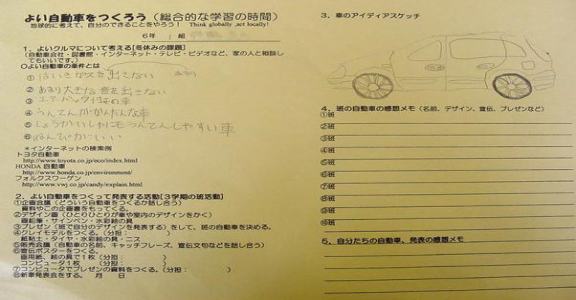 よい自動車をつくろう（総合的な学習の時間）
地球的に考えて、自分のできることをやろう！ Think globally ,act locally!
6年 組
1．よいクルマについて考える【冬休みの課題】
（自動車会社・図書館・インターネット・テレビ・ビデオなど、家の人と相談してもいいです。）
○よい自動車の条件とは
① はいきガスを出さない
② あまり大きな音を出さない
③ エアバック付きの車
④ うんてんがかんたんな車
⑤ しょうがいしゃにもうんてんしやすい車
⑥
＊インターネットの検索例
トヨタ自動車
http://www.toyota.co.jp/eco/index.html
HONDA 自動車
http://www.honda.co.jp/environment/
フォルクスワーゲン
http://www.vwj.co.jp/candy/explain.html
2．よい自動車をつくって発表する活動【3学期の班活動】
①企画会議（どういう自動車をつくるか話し合う）
資料やこの企画書をもってくる。
②デザイン画（ひとりひとりが車や室内のデザインをかく）
画鉛筆・サインペン・水彩絵の具
③プレゼン（班で自分のデザインを発表する）をして、班の自動車を決める。
④クレイモデルをつくる。（分担： ）
紙粘土・タイヤ・水彩絵の具・ニス
⑤販売会議（自動車の名前、キャッチフレーズ、宣伝文句などを話し合う）
⑥宣伝ポスターをつくる。
画用紙、絵の具で1枚（分担： ）
コンピュータ1枚 （分担： ）
⑦コンピュータでプレゼンの資料をつくる。（分担： ）
⑧新車発表会をする。 月 日
3．車のアイディアスケッチ
4．班の自動車の感想メモ（名前、デザイン、宣伝、プレゼンなど）
①班
②班
③班
④班
⑤班
⑥班
⑦班
⑧班
5．自分たちの自動車、発表の感想メモ